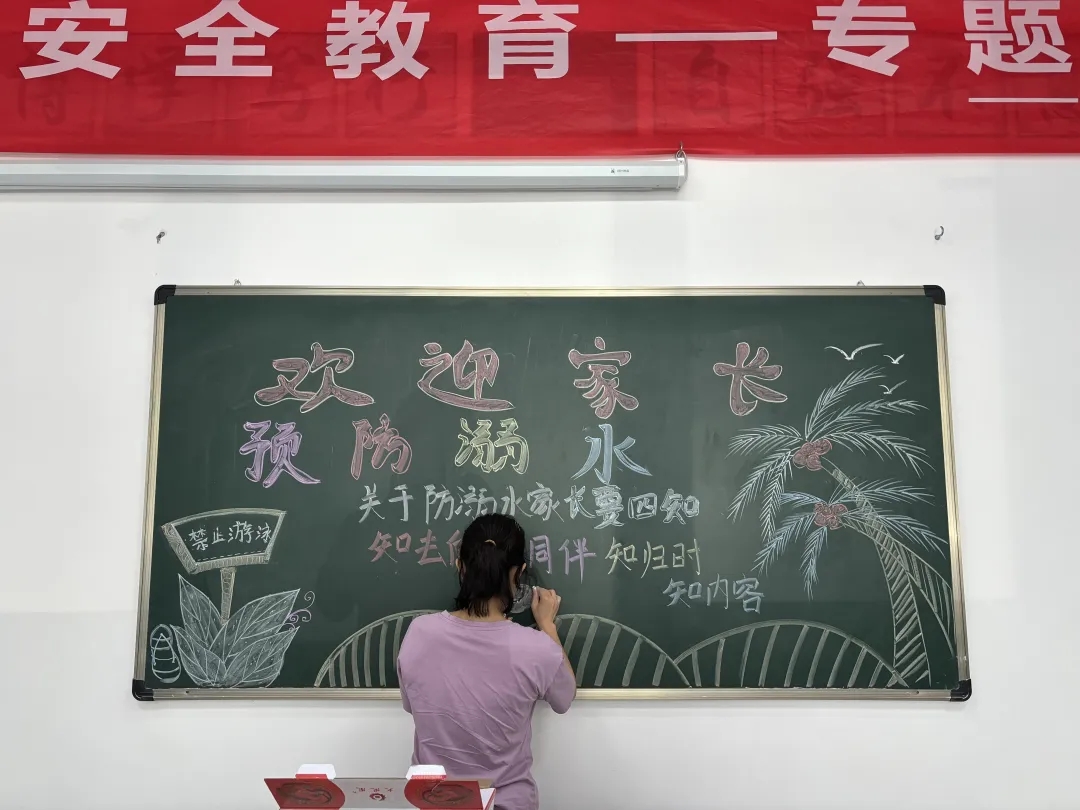 安全教育——专题
欢迎家长
预防溺水
关于防溺水家长要四知
知去 同伴 知归时
知内容
禁止游泳